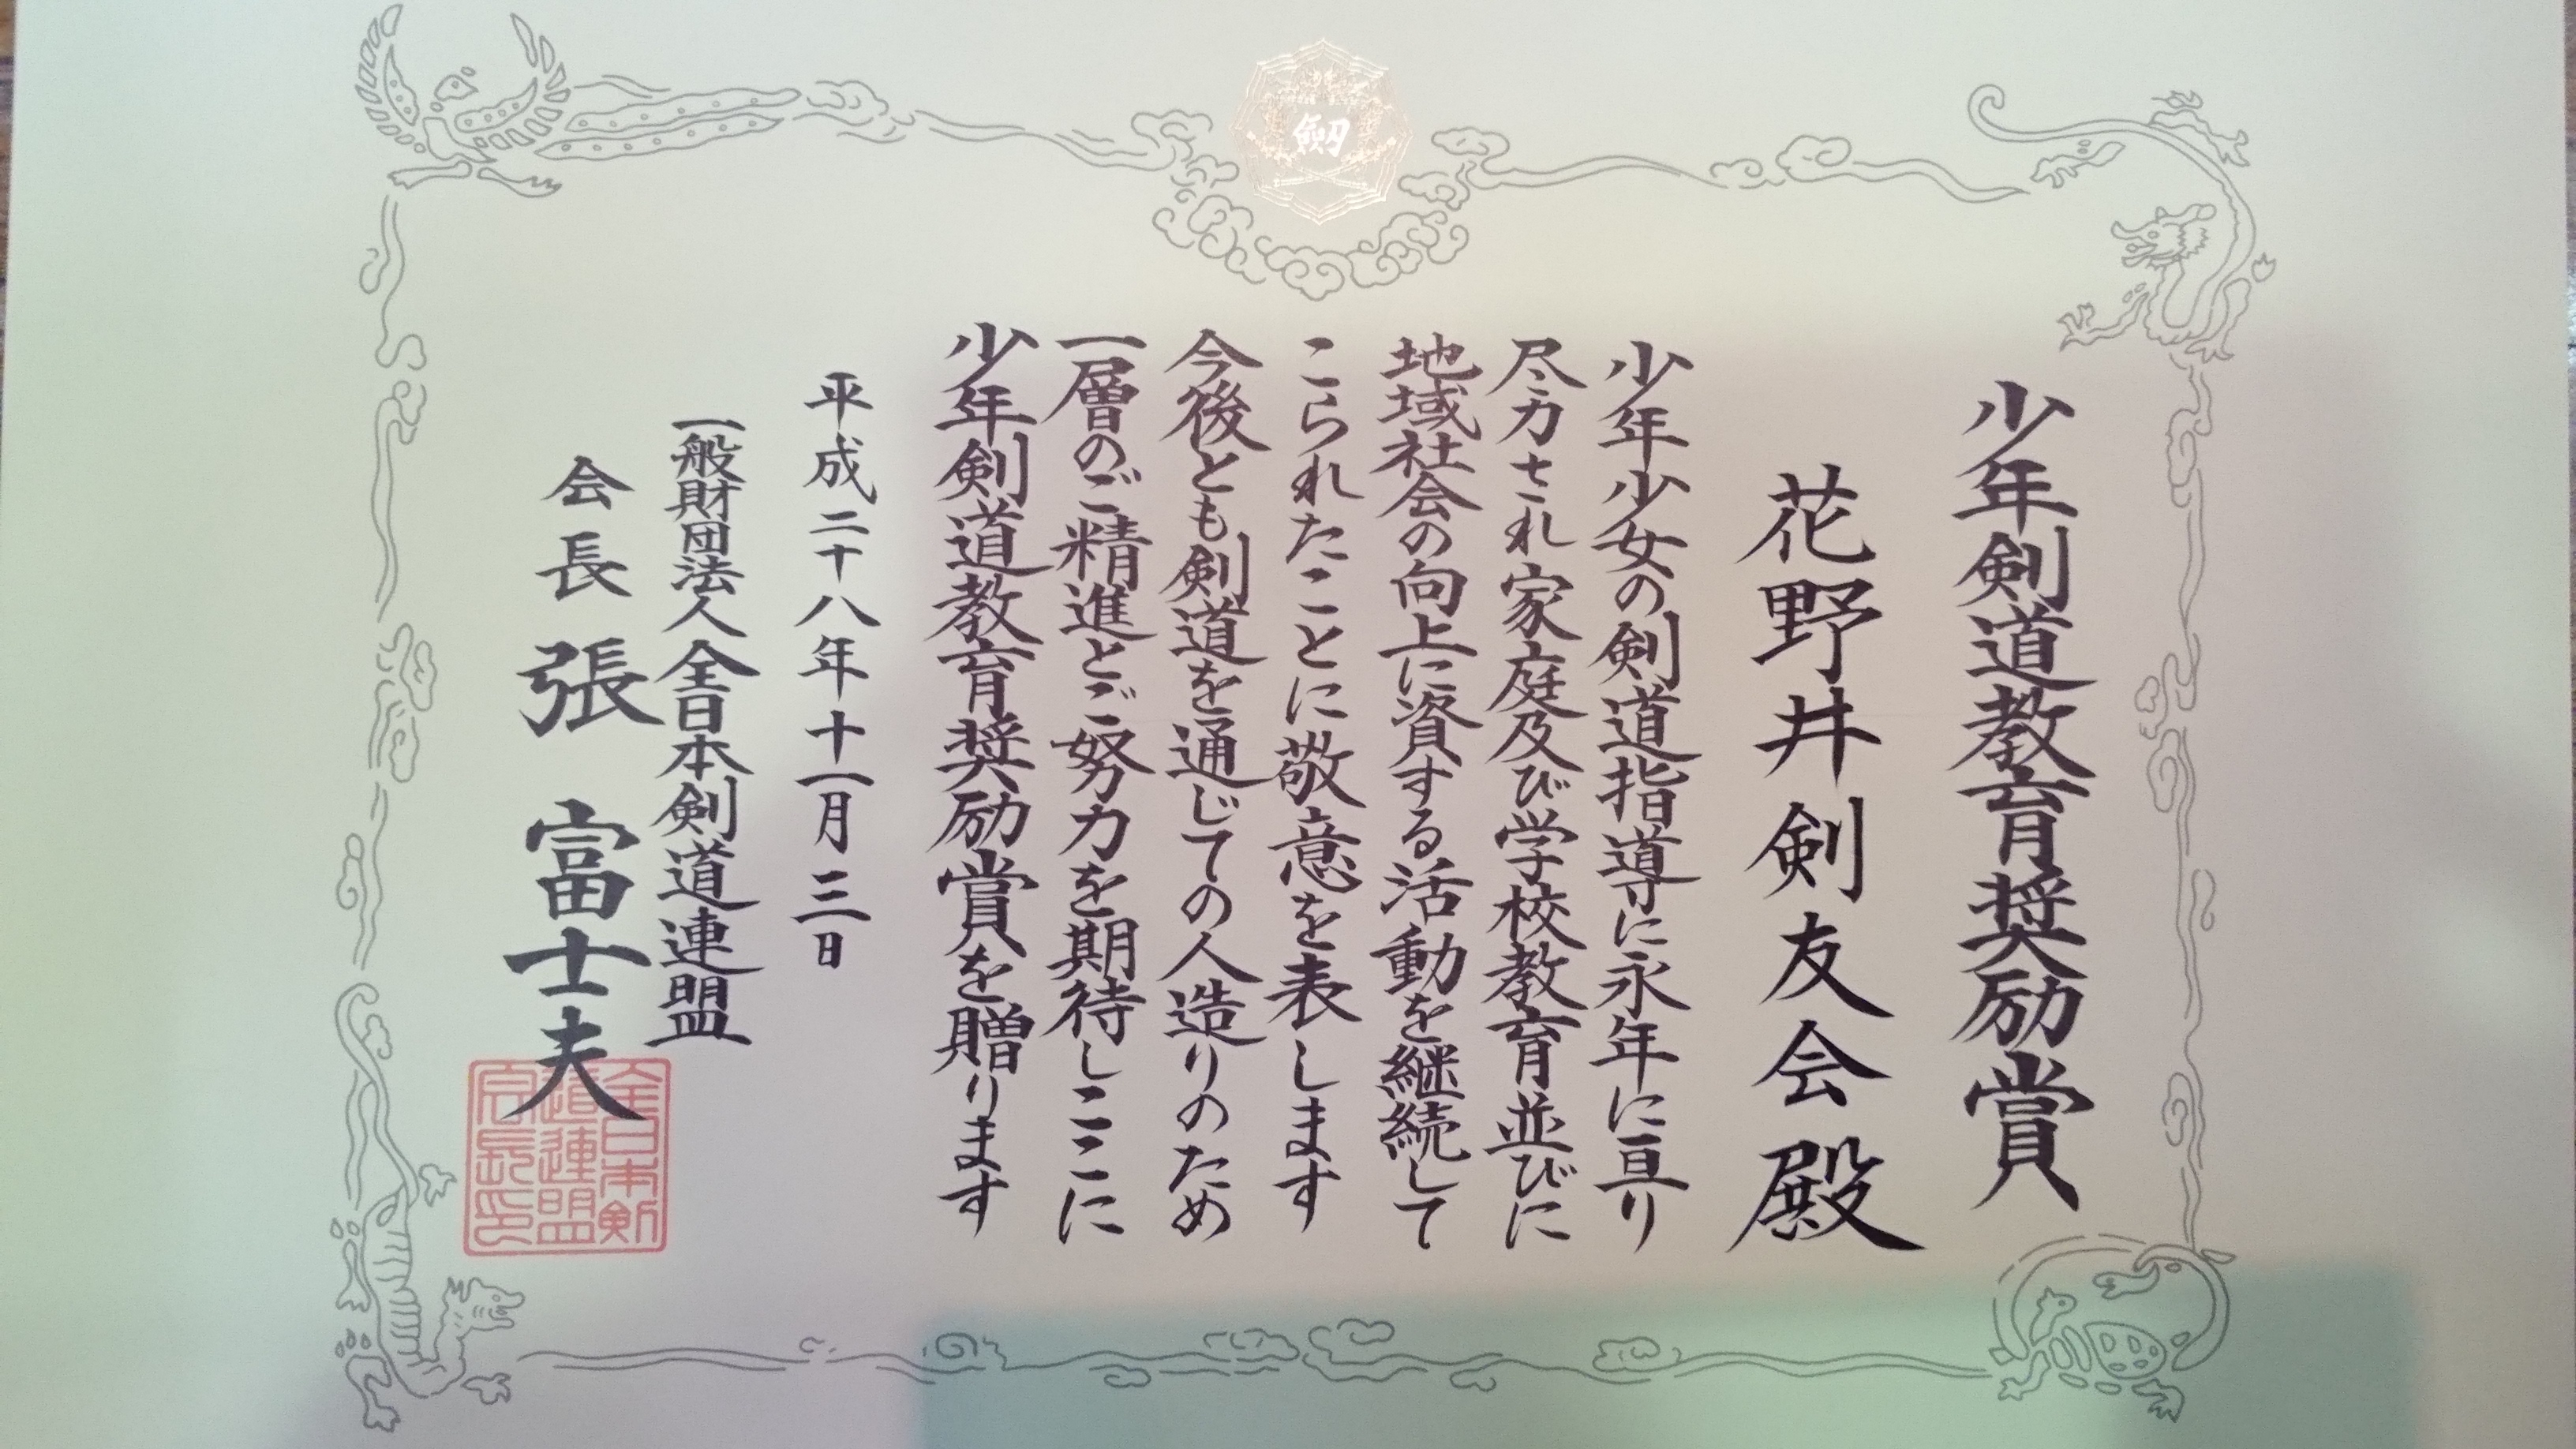 剣
少年剣道教育奨励賞
花野井剣友会殿
少年少女の剣道指導に永年に亘り
尽力され家庭及び学校教育並びに
地域社会の向上に資する活動を継続して
こられたことに敬意を表します
今後とも剣道を通じての人造りのため
一層のご精進とご努力を期待しここに
少年剣道教育奨励賞を贈ります
平成二十八年十一月三日
一般財団法人全日本剣道連盟
会長 張 富士夫
全日本剣
道連盟
会長印